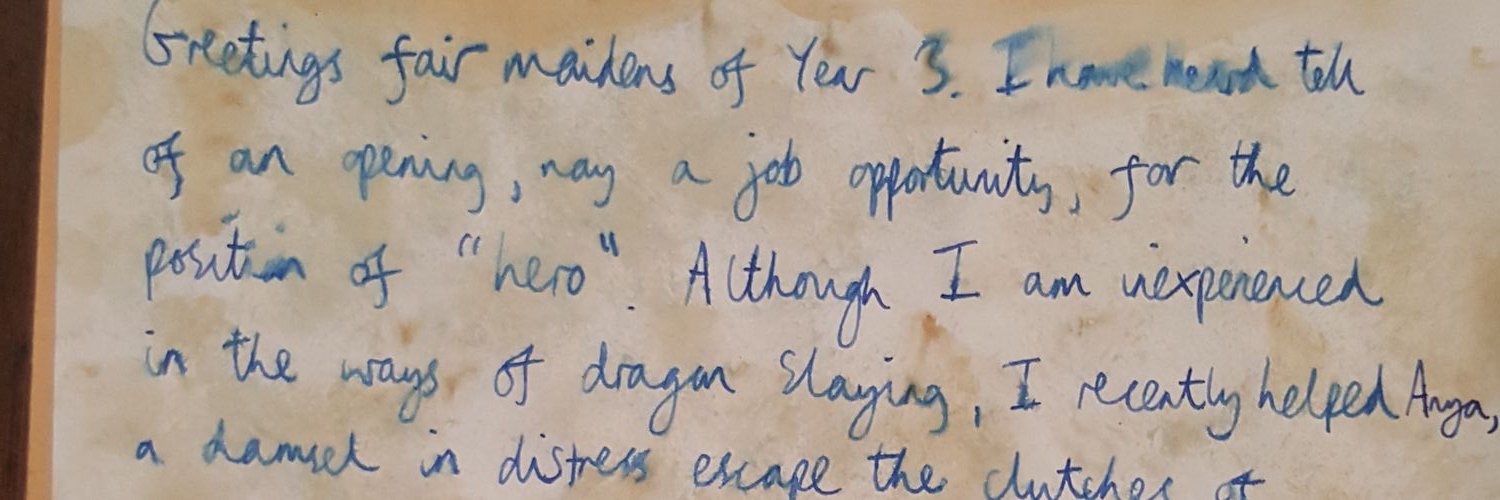 Greetings fair maidens of Year 3. I have heard tell
of an opening, nay a job opportunity, for the
position of "hero". Although I am inexperienced
in the ways of dragon slaying, I recently helped Anya,
a damsel in distress escape the clutches of